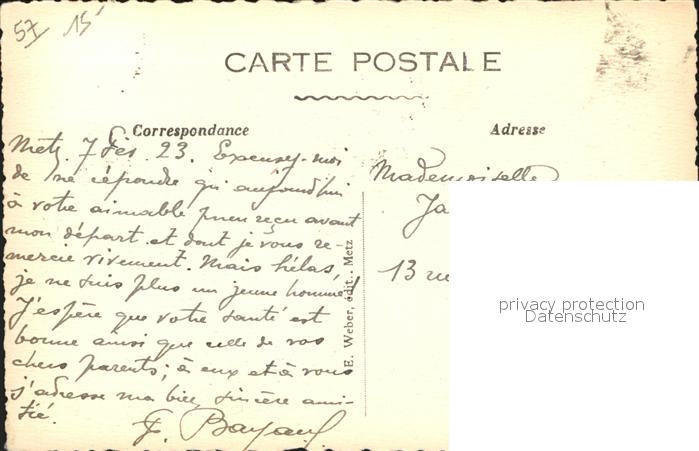 57 15
CARTE POSTALE
Correspondance
Adresse
Metz. 7 Fév. 23. Excusez-moi
de ne répondre qu'aujourd'hui
à votre aimable pneu reçu avant
mon départ et dont je vous re-
mercie vivement. Mais hélas,
je ne suis plus un jeune homme!
J'espère que votre santé est
bonne ainsi que celle de vos
chers parents; à eux et à vous
j'adresse ma bien sincère ami-
tié.
E. Weber, édit., Metz
Mademoiselle
Ja
13 rue
privacy protection
Datenschutz